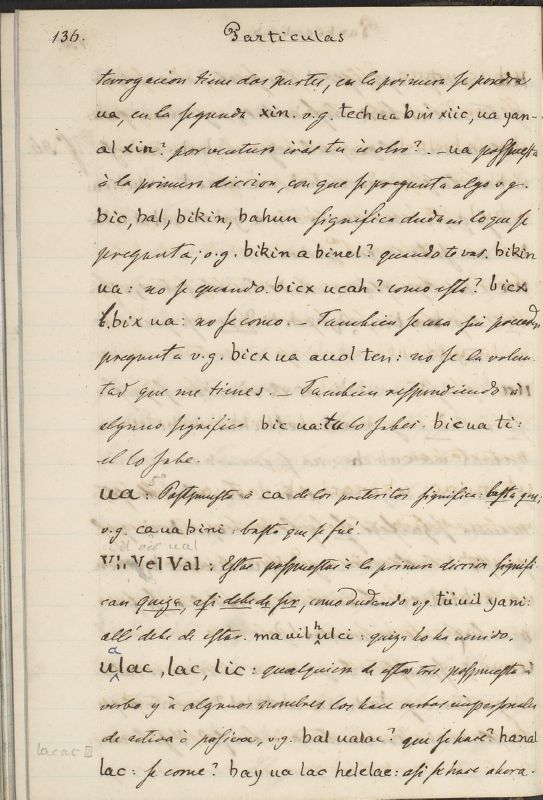 136.
Particulas
terrogacion tiene dos partes, en la primera se pondra
ua, en la segunda xin. v.g. tech ua bin xiic, ua yan-
al xin? por ventura irás tu ù otro? — ua posspuesta
à la primera diccion, con que se pregunta algo v.g.
bic, bal, bikin, bahun significa duda en lo que se
pregunta; v.g. bikin a binel? quando te vas. bikin
ua: no se quando. bicx ucah? como esta? bicx
l. bix ua: no se como. — Tambien se usa sin preceder
pregunta v.g. bicx ua auol ten: no se la volun-
tad que me tienes. — Tambien respondiendo à
alguno significa bic ua: tu lo sabes. bic ua ti:
el lo sabe.
ua: Postpuesto à ca de los preteritos significa: basta que,
v.g. ca ua bini: basta que se fué.
ó vil ual
Vil Vel Val: Estas posspuestas à la primera diccion signifi-
can quiza, asi debe de ser, como dudando v.g. tii uil yani:
allí debe de estar. ma uil h ulci: quiza no ha venido.
a
ulac, lac, lic: qualquiera de estas tres posspuesta à
verbo y à algunos nombres los hace verbos impersonales
de activa à pasiva, v.g. bal ualac? que se hace? hanal
lacac
lac: se come? bay ua lac helelae: asi se hace ahora.